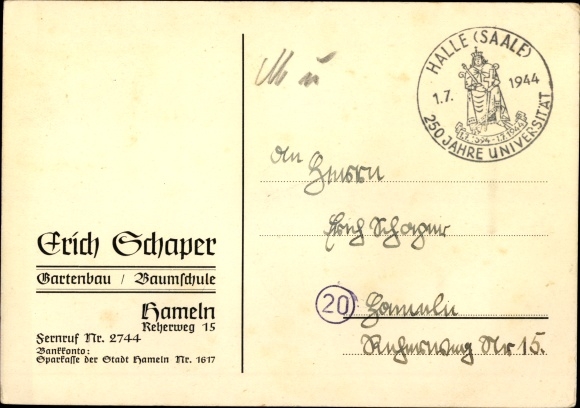 Erich Schaper
Gartenbau / Baumschule
Hameln
Reherweg 15
Fernruf Nr. 2744
Bankkonto:
Sparkasse der Stadt Hameln Nr. 1617
HALLE (SAALE)
1.7. 1944
250 JAHRE UNIVERSITÄT
An Herrn
Erich Schaper
20 Hameln
Reherweg Nr 15.